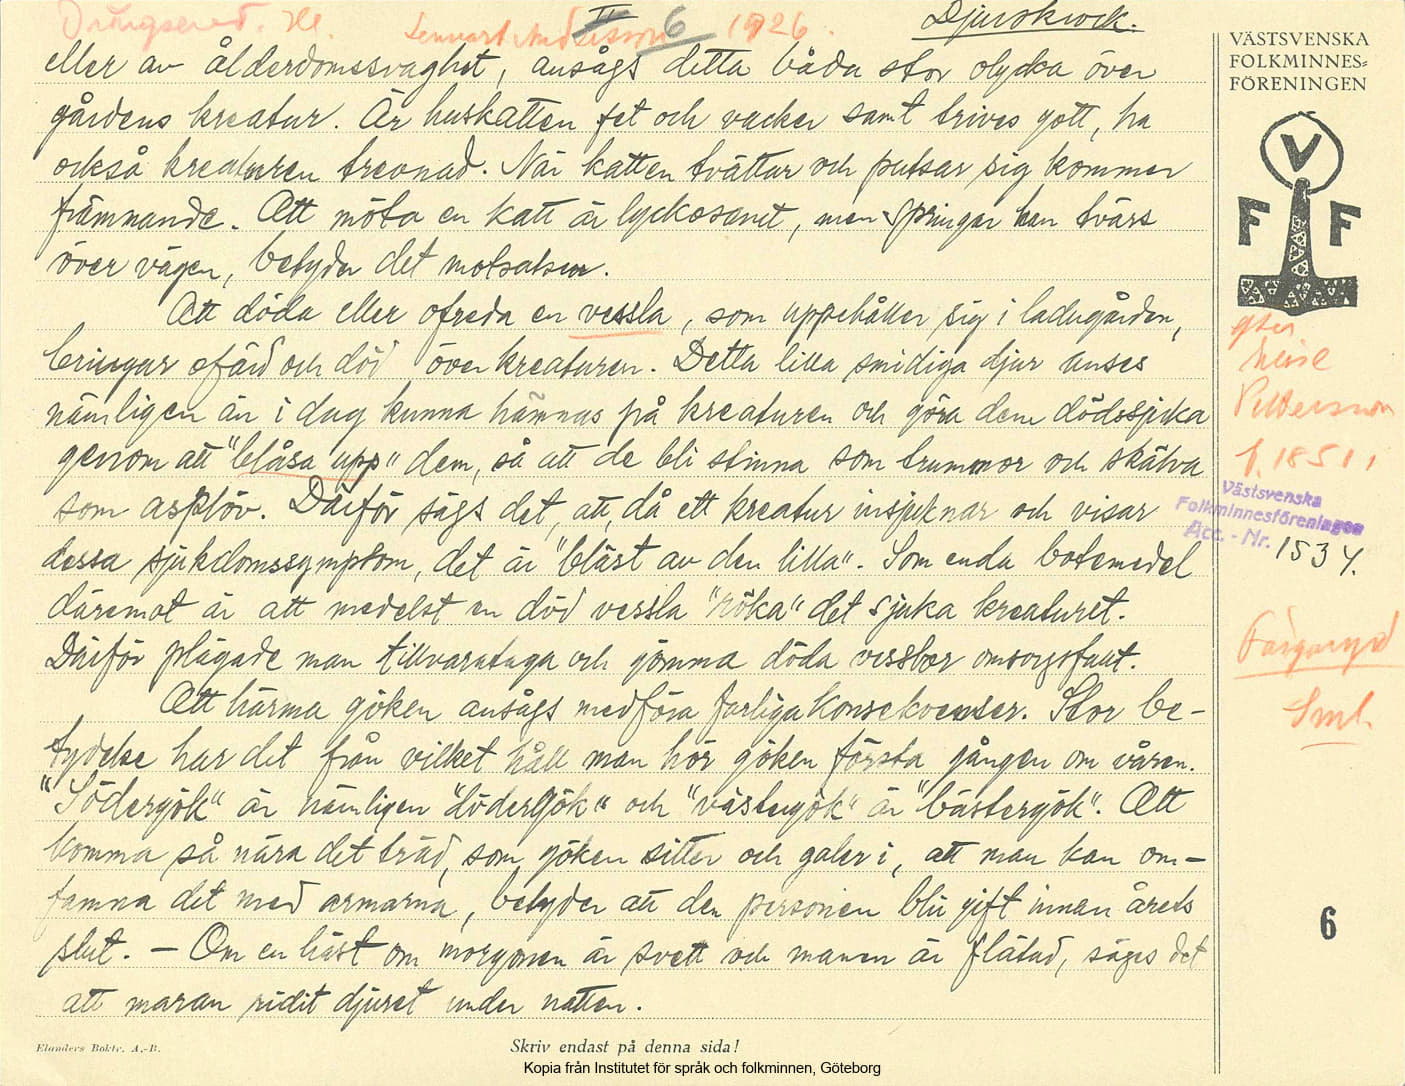 Drängsered. Hl. Lennart Andersson 6 1926. Djurskrock.
eller av ålderdomssvaghet, ansågs detta båda stor olycka över
gårdens kreatur. Är huskatten fet och vacker samt trives gott, ha
också kreaturen trevnad. När katten tvättar och putsar sig kommer
främmande. Att möta en katt är lyckosamt, men springer han tvärs
över vägen, betyder det motsatsen.
Att döda eller ofreda en vessla, som uppehåller sig i ladugården,
bringar ofärd och död över kreaturen. Detta lilla smidiga djur anses
nämligen än i dag kunna hämnas på kreaturen och göra dem dödssjuka
genom att "blåsa upp" dem, så att de bli stinna som trummor och skälva
som asplöv. Därför sägs det, att, då ett kreatur insjuknar och visar
dessa sjukdomssymptom, det är "bläst av den lilla". Som enda botemedel
däremot är att medelst en död vessla "röka" det sjuka kreaturet.
Därför plägade man tillvarataga och gömma döda vesslor omsorgsfullt.
Att härma göken ansågs medföra farliga konsekvenser. Stor be-
tydelse har det från vilket håll man hör göken första gången om våren.
"Södergök" är nämligen "dödergök" och "västergök" är "bästergök". Att
komma så nära det träd, som göken sitter och galer i, att man kan om-
famna det med armarna, betyder att den personen blir gift innan årets
slut. — Om en häst om morgonen är svett och manen är flätad, säges det
att maran ridit djuret under natten.
VÄSTSVENSKA
FOLKMINNES=
FÖRENINGEN
V
F F
Pettersson
f. 1851,
Västsvenska
Folkminnesföreningen
Acc. - Nr. 1534.
Färgaryd
Sml.
6
Elanders Boktr. A.-B.
Skriv endast på denna sida!
Kopia från Institutet för språk och folkminnen, Göteborg